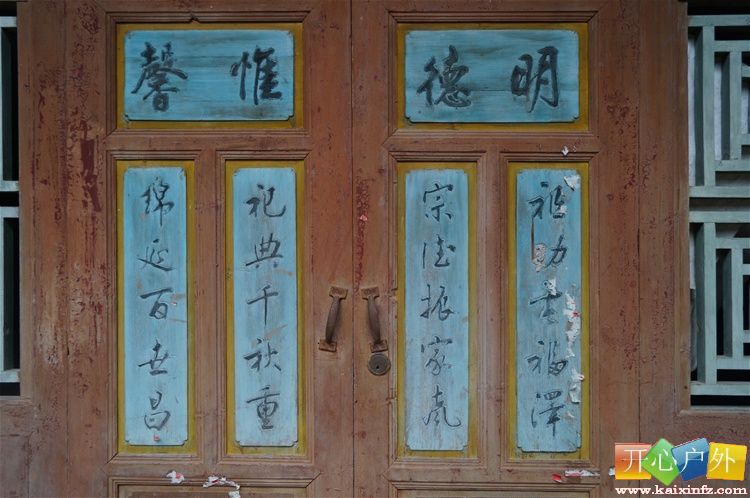 明德
惟馨
祖功垂福澤
宗德振家风
祀典千秋重
绵延百世昌
开心户外
www.kaixinfz.com